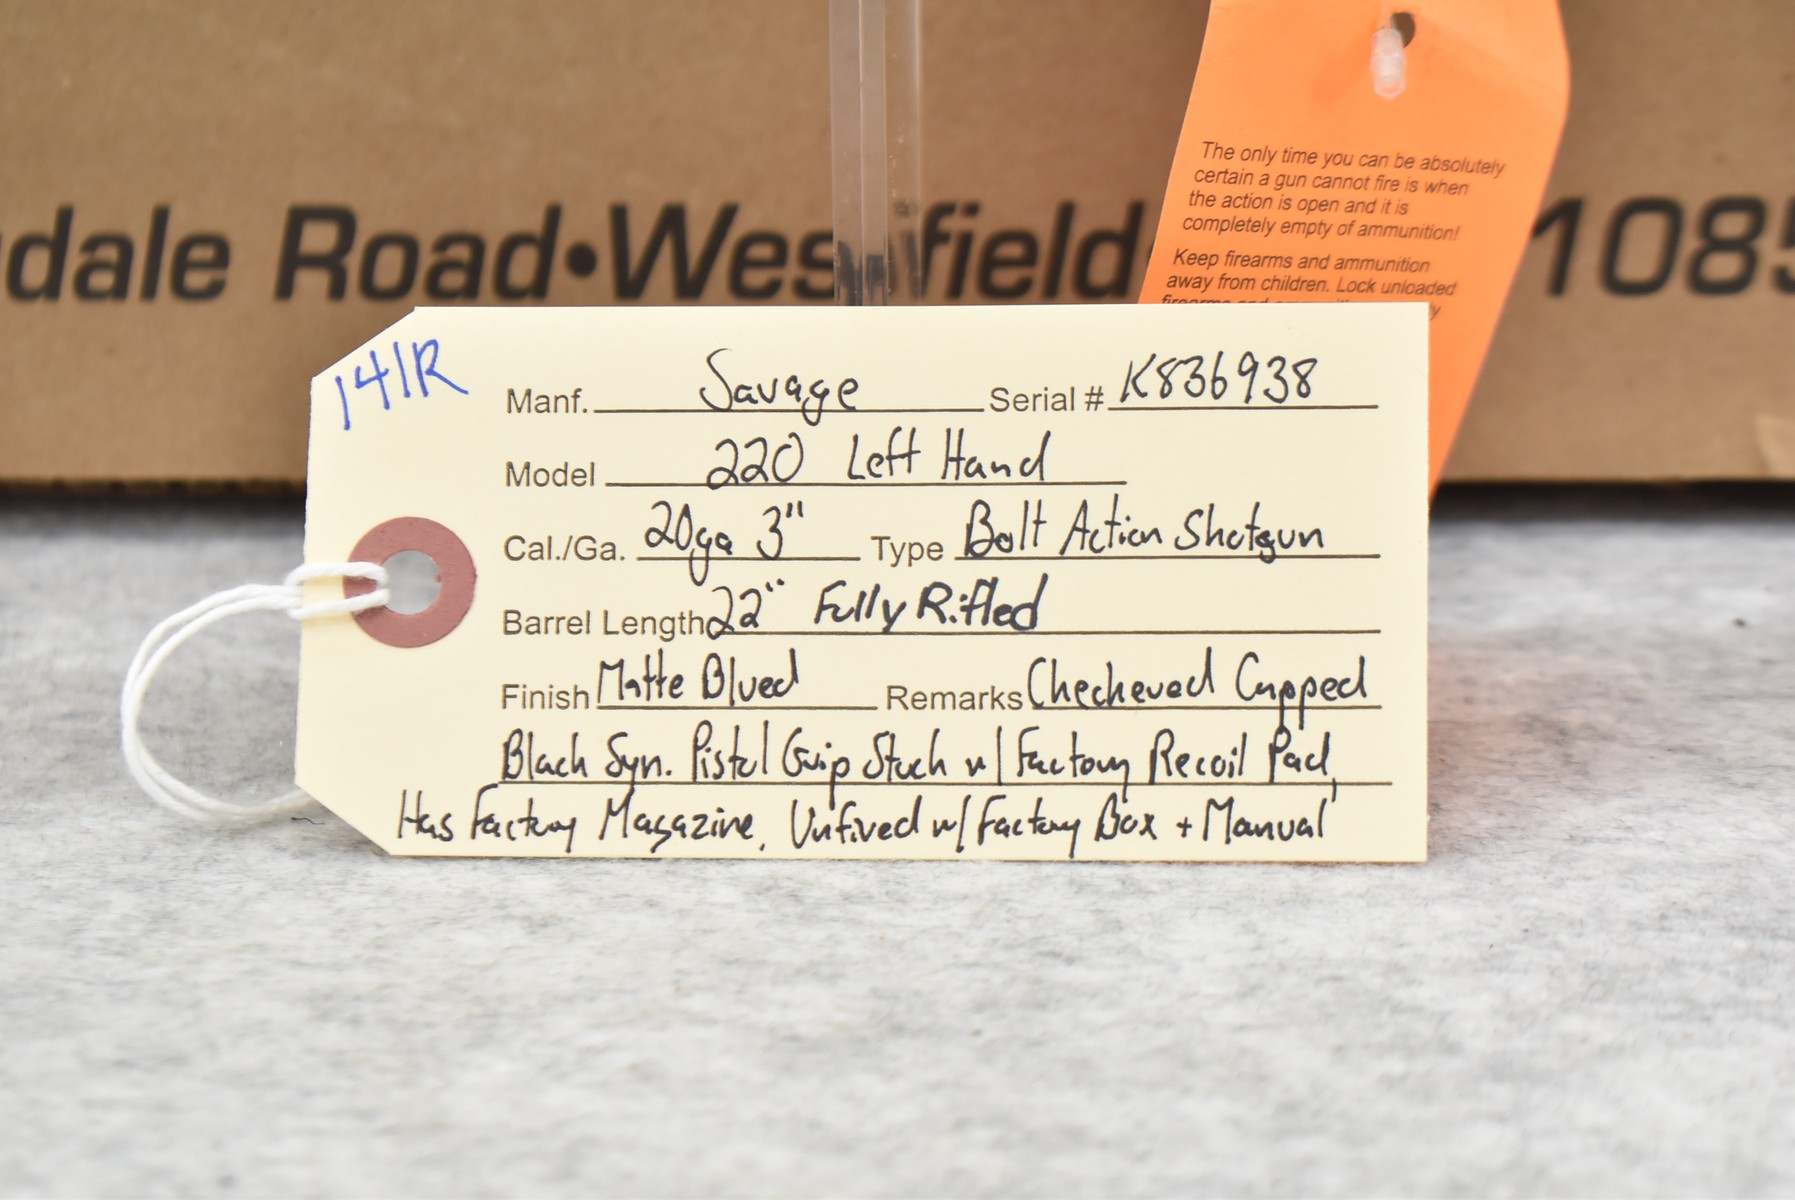 dale Road•Westfield
1085
The only time you can be absolutely
certain a gun cannot fire is when
the action is open and it is
completely empty of ammunition!
Keep firearms and ammunition
away from children. Lock unloaded
141R
Manf. Savage Serial # K836938
Model 220 Left Hand
Cal./Ga. 20ga 3" Type Bolt Action Shotgun
Barrel Length 22" Fully Rifled
Finish Matte Blued Remarks Checkered Capped
Black Syn. Pistol Grip Stock w/ Factory Recoil Pad,
Has Factory Magazine, Unfired w/ Factory Box + Manual